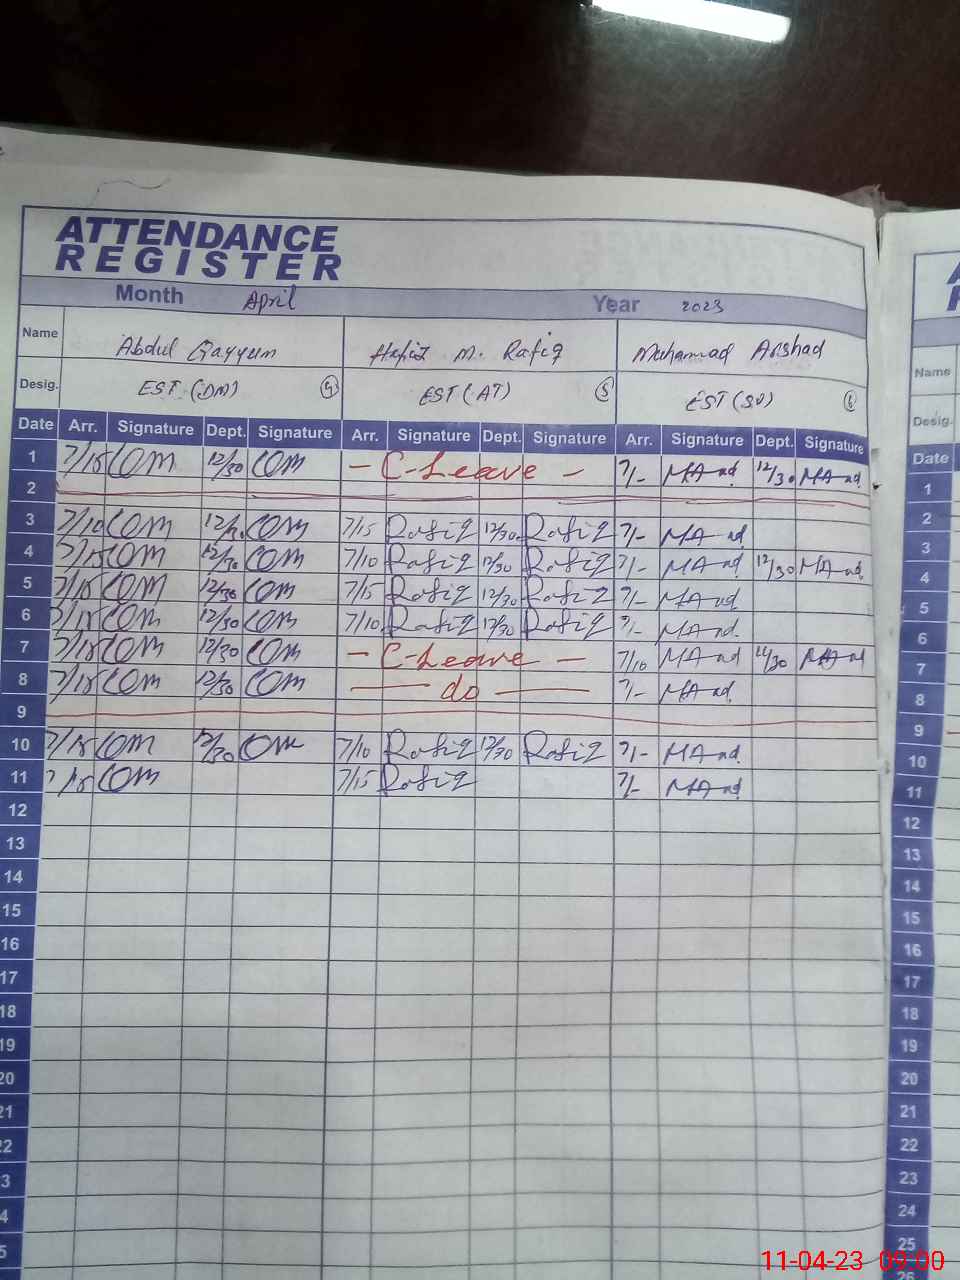 ATTENDANCE
REGISTER
Month April Year 2023
Name Abdul Qayyum Hafiz M. Rafiq Muhammad Arshad
Desig. EST (DM) 4 EST (AT) 5 EST (SV) 6
Date Arr. Signature Dept. Signature Arr. Signature Dept. Signature Arr. Signature Dept. Signature
1 7/15 12/30 - C-Leave - 7/- 12/30
2
3 7/10 12/30 7/15 Rafiq 12/30 Rafiq 7/-
4 7/15 12/30 7/10 Rafiq 12/30 Rafiq 7/- 12/30
5 7/15 12/30 7/15 Rafiq 12/30 Rafiq 7/-
6 7/15 12/30 7/10 Rafiq 12/30 Rafiq 7/-
7 7/15 12/30 - C-Leave - 7/10 12/30
8 7/15 12/30 — do — 7/-
9
10 7/15 12/30 7/10 Rafiq 12/30 Rafiq 7/-
11 7/15 7/15 Rafiq 7/-
12
13
14
15
16
17
18
19
20
21
22
3
4
5
Name
Desig.
Date
1
2
3
4
5
6
7
8
9
10
11
12
13
14
15
16
17
18
19
20
21
22
23
24
25
26
11-04-23 09:00